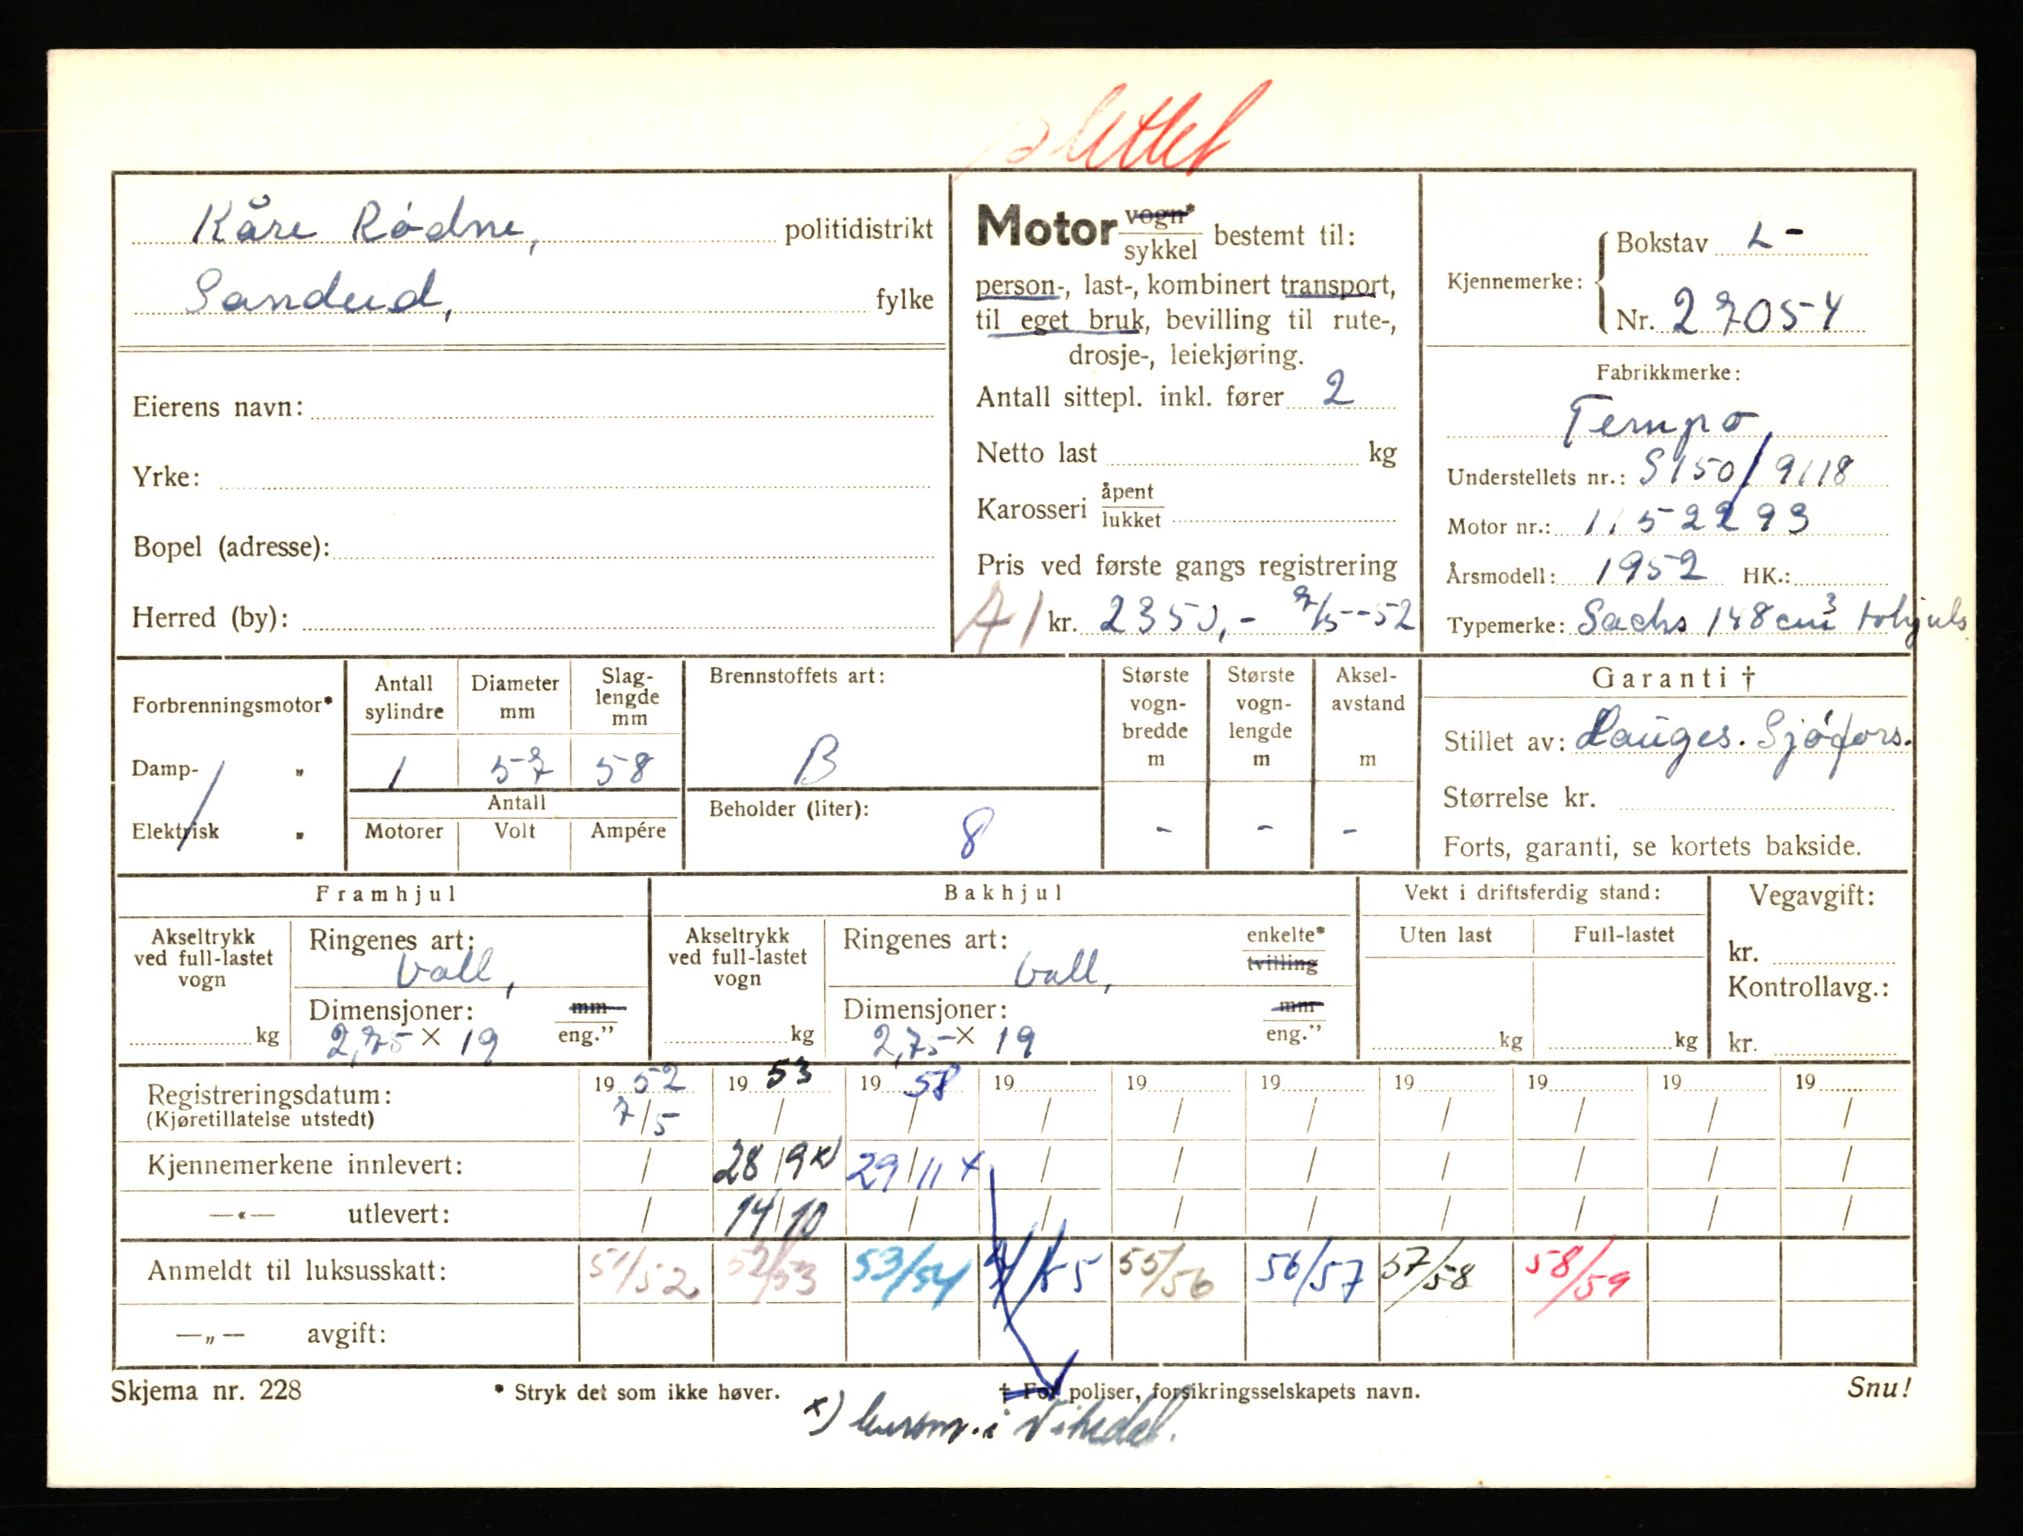 slettet
Kåre Rødne, politidistrikt
Sandeid, fylke
Eierens navn:
Yrke:
Bopel (adresse):
Herred (by):
Motor vogn* / sykkel bestemt til:
person-, last-, kombinert transport,
til eget bruk, bevilling til rute-,
drosje-, leiekjøring.
Antall sittepl. inkl. fører 2
Netto last kg
Karosseri åpent / lukket
Pris ved første gangs registrering
A1 kr. 2350,- 7/5-52
Kjennemerke: Bokstav L-
Nr. 27054
Fabrikkmerke:
Tempo
Understellets nr.: S150/9118
Motor nr.: 1152293
Årsmodell: 1952 HK.:
Typemerke: Sachs 148 cm³ tohjuls
Forbrenningsmotor*
Damp- „
Elektrisk „
Antall sylindre
Diameter mm
Slag-lengde mm
1 57 58
Antall
Motorer Volt Ampére
Brennstoffets art:
B
Beholder (liter):
8
Største vogn-bredde m
Største vogn-lengde m
Aksel-avstand m
- - -
Garanti †
Stillet av: Hauges. Sjøfors.
Størrelse kr.
Forts, garanti, se kortets bakside.
Framhjul
Akseltrykk ved full-lastet vogn
kg
Ringenes art:
ball,
Dimensjoner: mm / eng.”
2,75 × 19
Bakhjul
Akseltrykk ved full-lastet vogn
kg
Ringenes art: enkelte* / tvilling
ball,
Dimensjoner: mm / eng.”
2,75 × 19
Vekt i driftsferdig stand:
Uten last Full-lastet
kg kg
Vegavgift:
kr.
Kontrollavg.:
kr.
Registreringsdatum: 19 52 19 53 19 58 19 19 19 19 19 19 19
(Kjøretillatelse utstedt) 7/5 / / / / / / / / /
Kjennemerkene innlevert: / 28/9 x) 29/11 x / / / / / / /
—«— utlevert: / 14/10 / / / / / / / /
Anmeldt til luksusskatt: 51/52 52/53 53/54 54/55 55/56 56/57 57/58 58/59
—„— avgift:
Skjema nr. 228 * Stryk det som ikke høver. † For poliser, forsikringsselskapets navn. Snu!
x) i Vikedal.